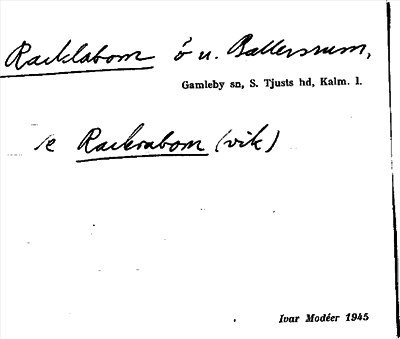 Racklabom ö u. Ballersrum,
Gamleby sn, S. Tjusts hd, Kalm. l.
se Rackrabom (vik)
Ivar Modéer 1945